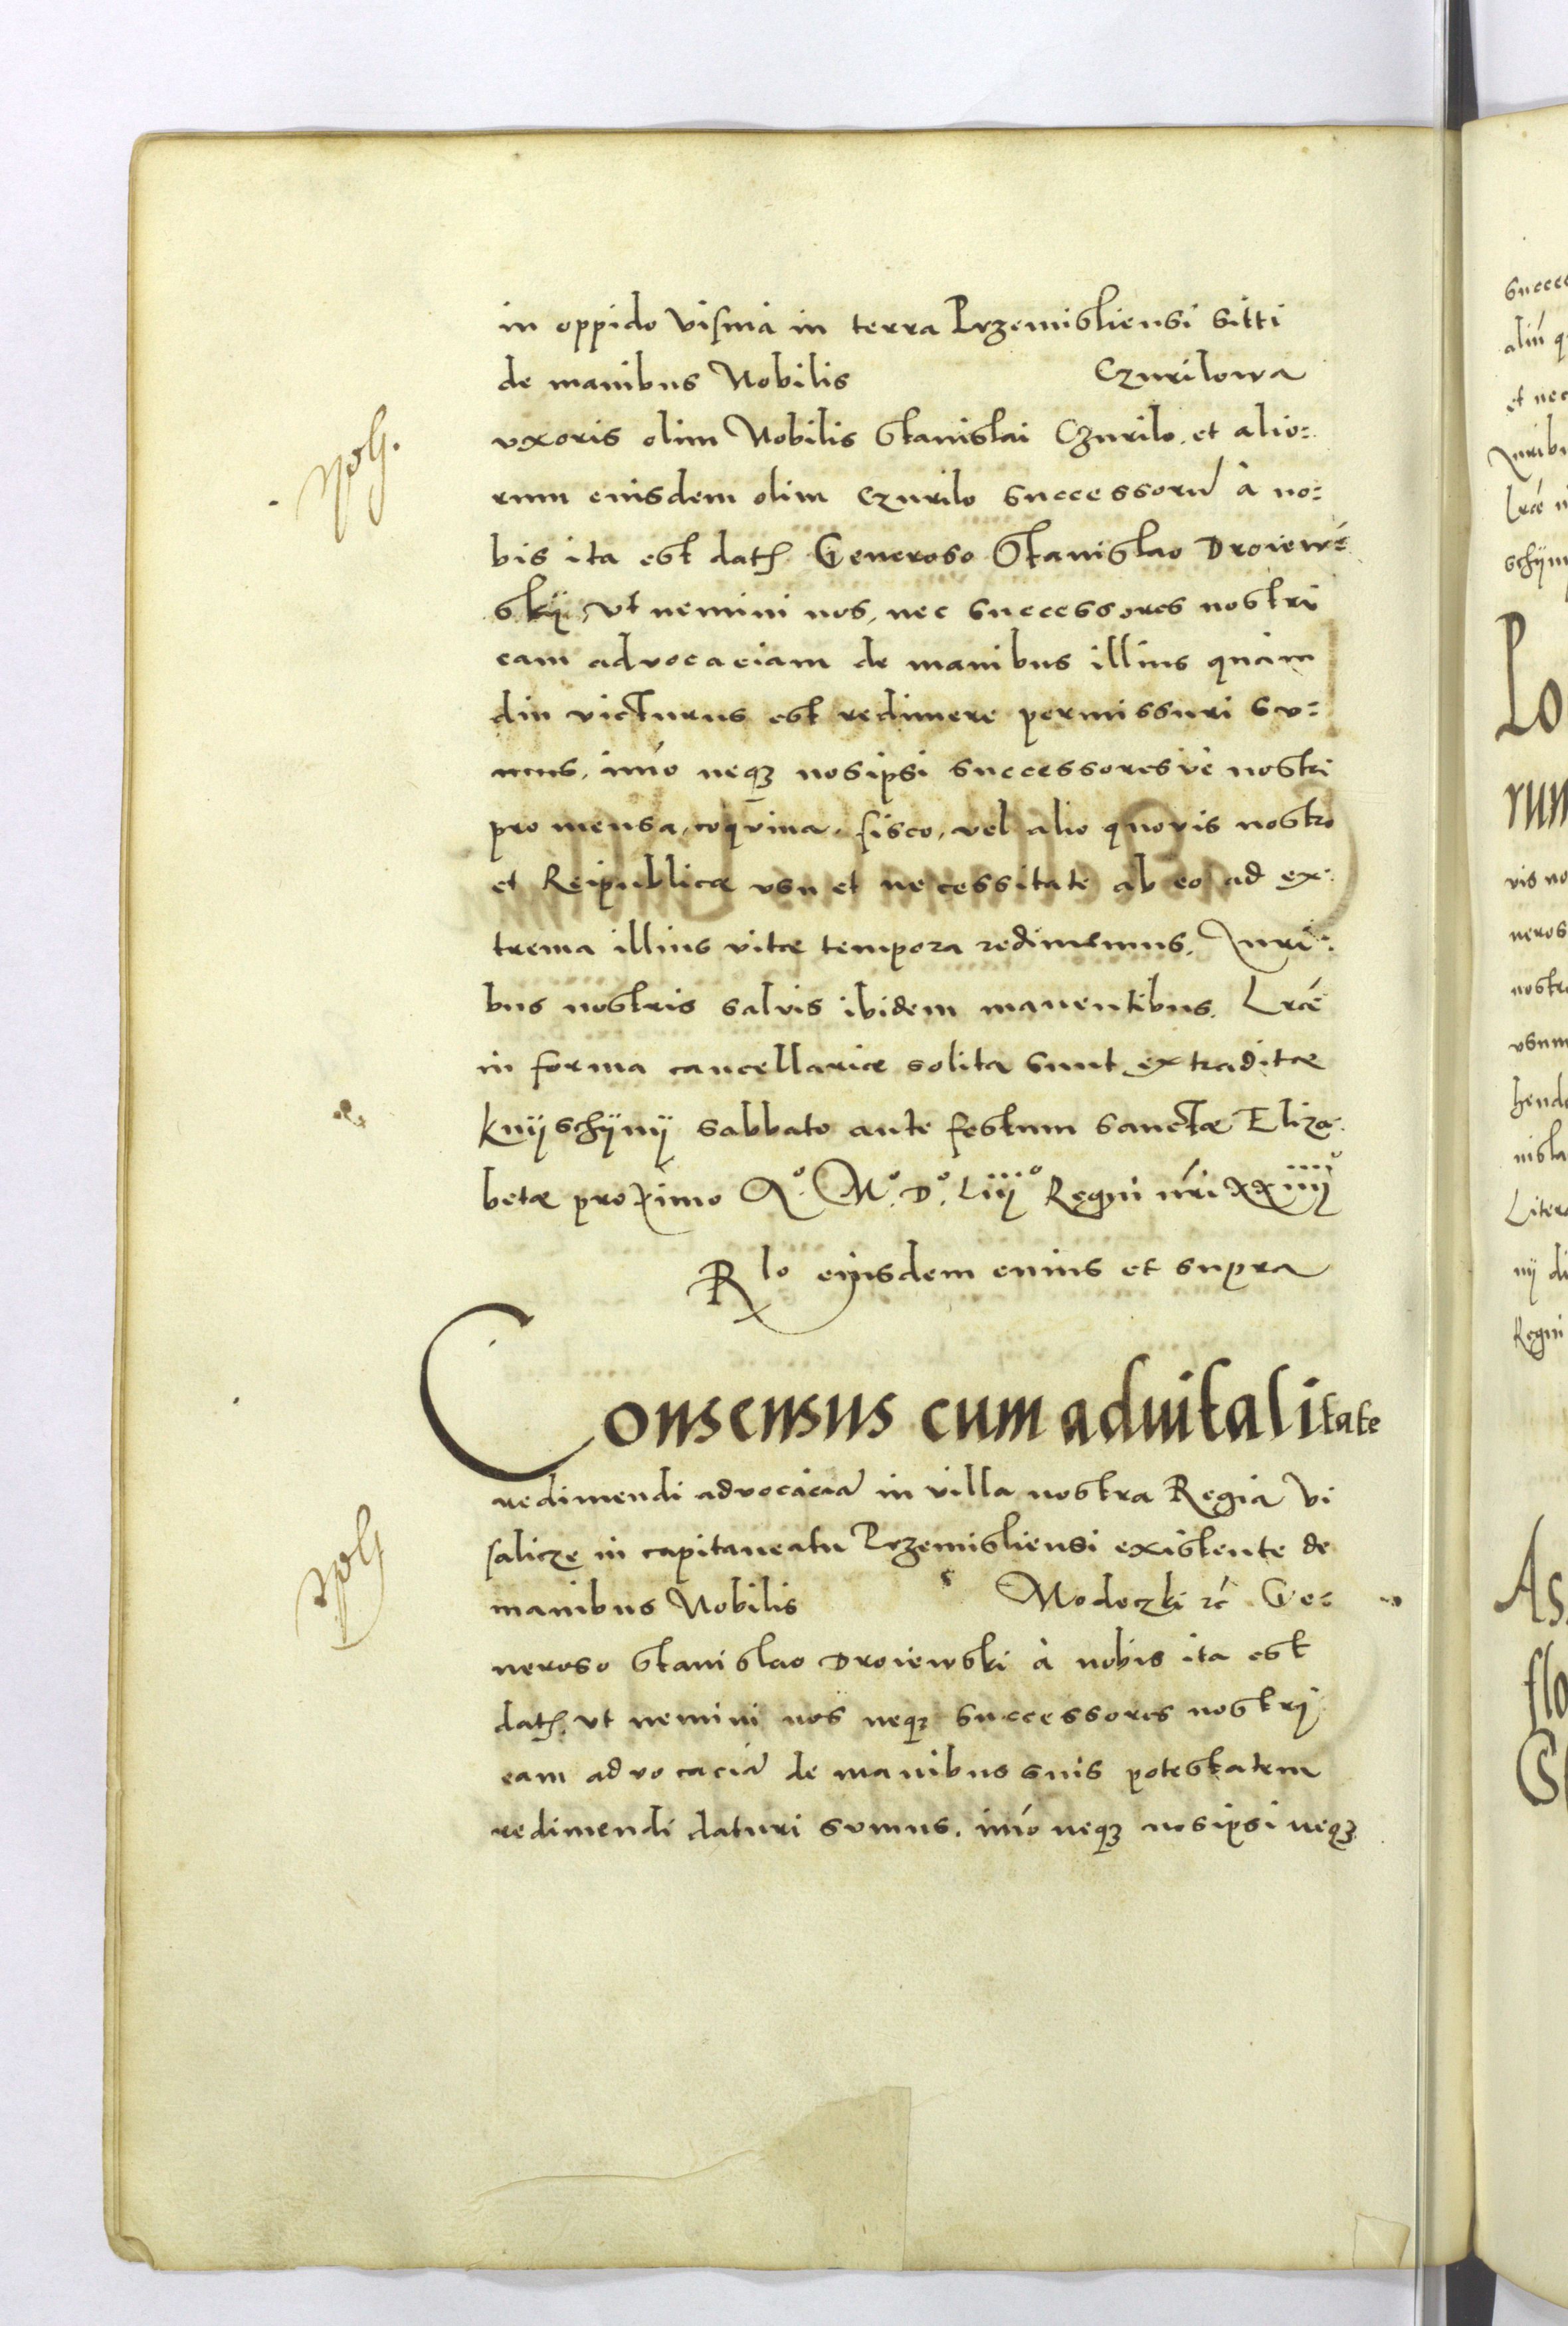 in oppido Visnia in terra Przemisliensi sitti
de manibus Nobilis Czurilowa
vxoris olim Nobilis Stanislai Czurilo, et alio:
rum eiusdem olim Czurilo successorũ à no:
bis ita est datꝫ Generoso Stanislao Droiew:
skij, vt nemini nos, nec successores nostri
eam advocaciam de manibus illius quàm
diu victurus est redimere permissuri su:
mus, imò neqꝫ nosipsi successoresvè nostri
pro mensa, coqvina, fisco, vel alio quovis nostro
et Reipublicæ vsu et necessitate ab eo ad ex:
trema illius vitæ tempora redimemus, Juri:
bus nostris salvis ibidem manentibus. Lræ
in forma cancellariæ solita sunt extraditæ
knijschijnij sabbato ante festum sanctæ Eliza:
betæ proximo Aº. Mº. Dº. Liijº Regni nri xxiiijº
Rlo eiusdem cuius et supra
Consensus cum advitalitate
redimendi advocaciã in villa nostra Regia Vi
salicze in capitaneatu Przemisliensi existente de
manibus Nobilis Modoczki rc Ge:
neroso Stanislao Droiewski à nobis ita est
datꝫ, vt nemini nos neqꝫ successores nostrij
eam advocaciã de manibus suis potestatem
redimendi daturi sumus, imò neqꝫ nosipsi neqꝫ